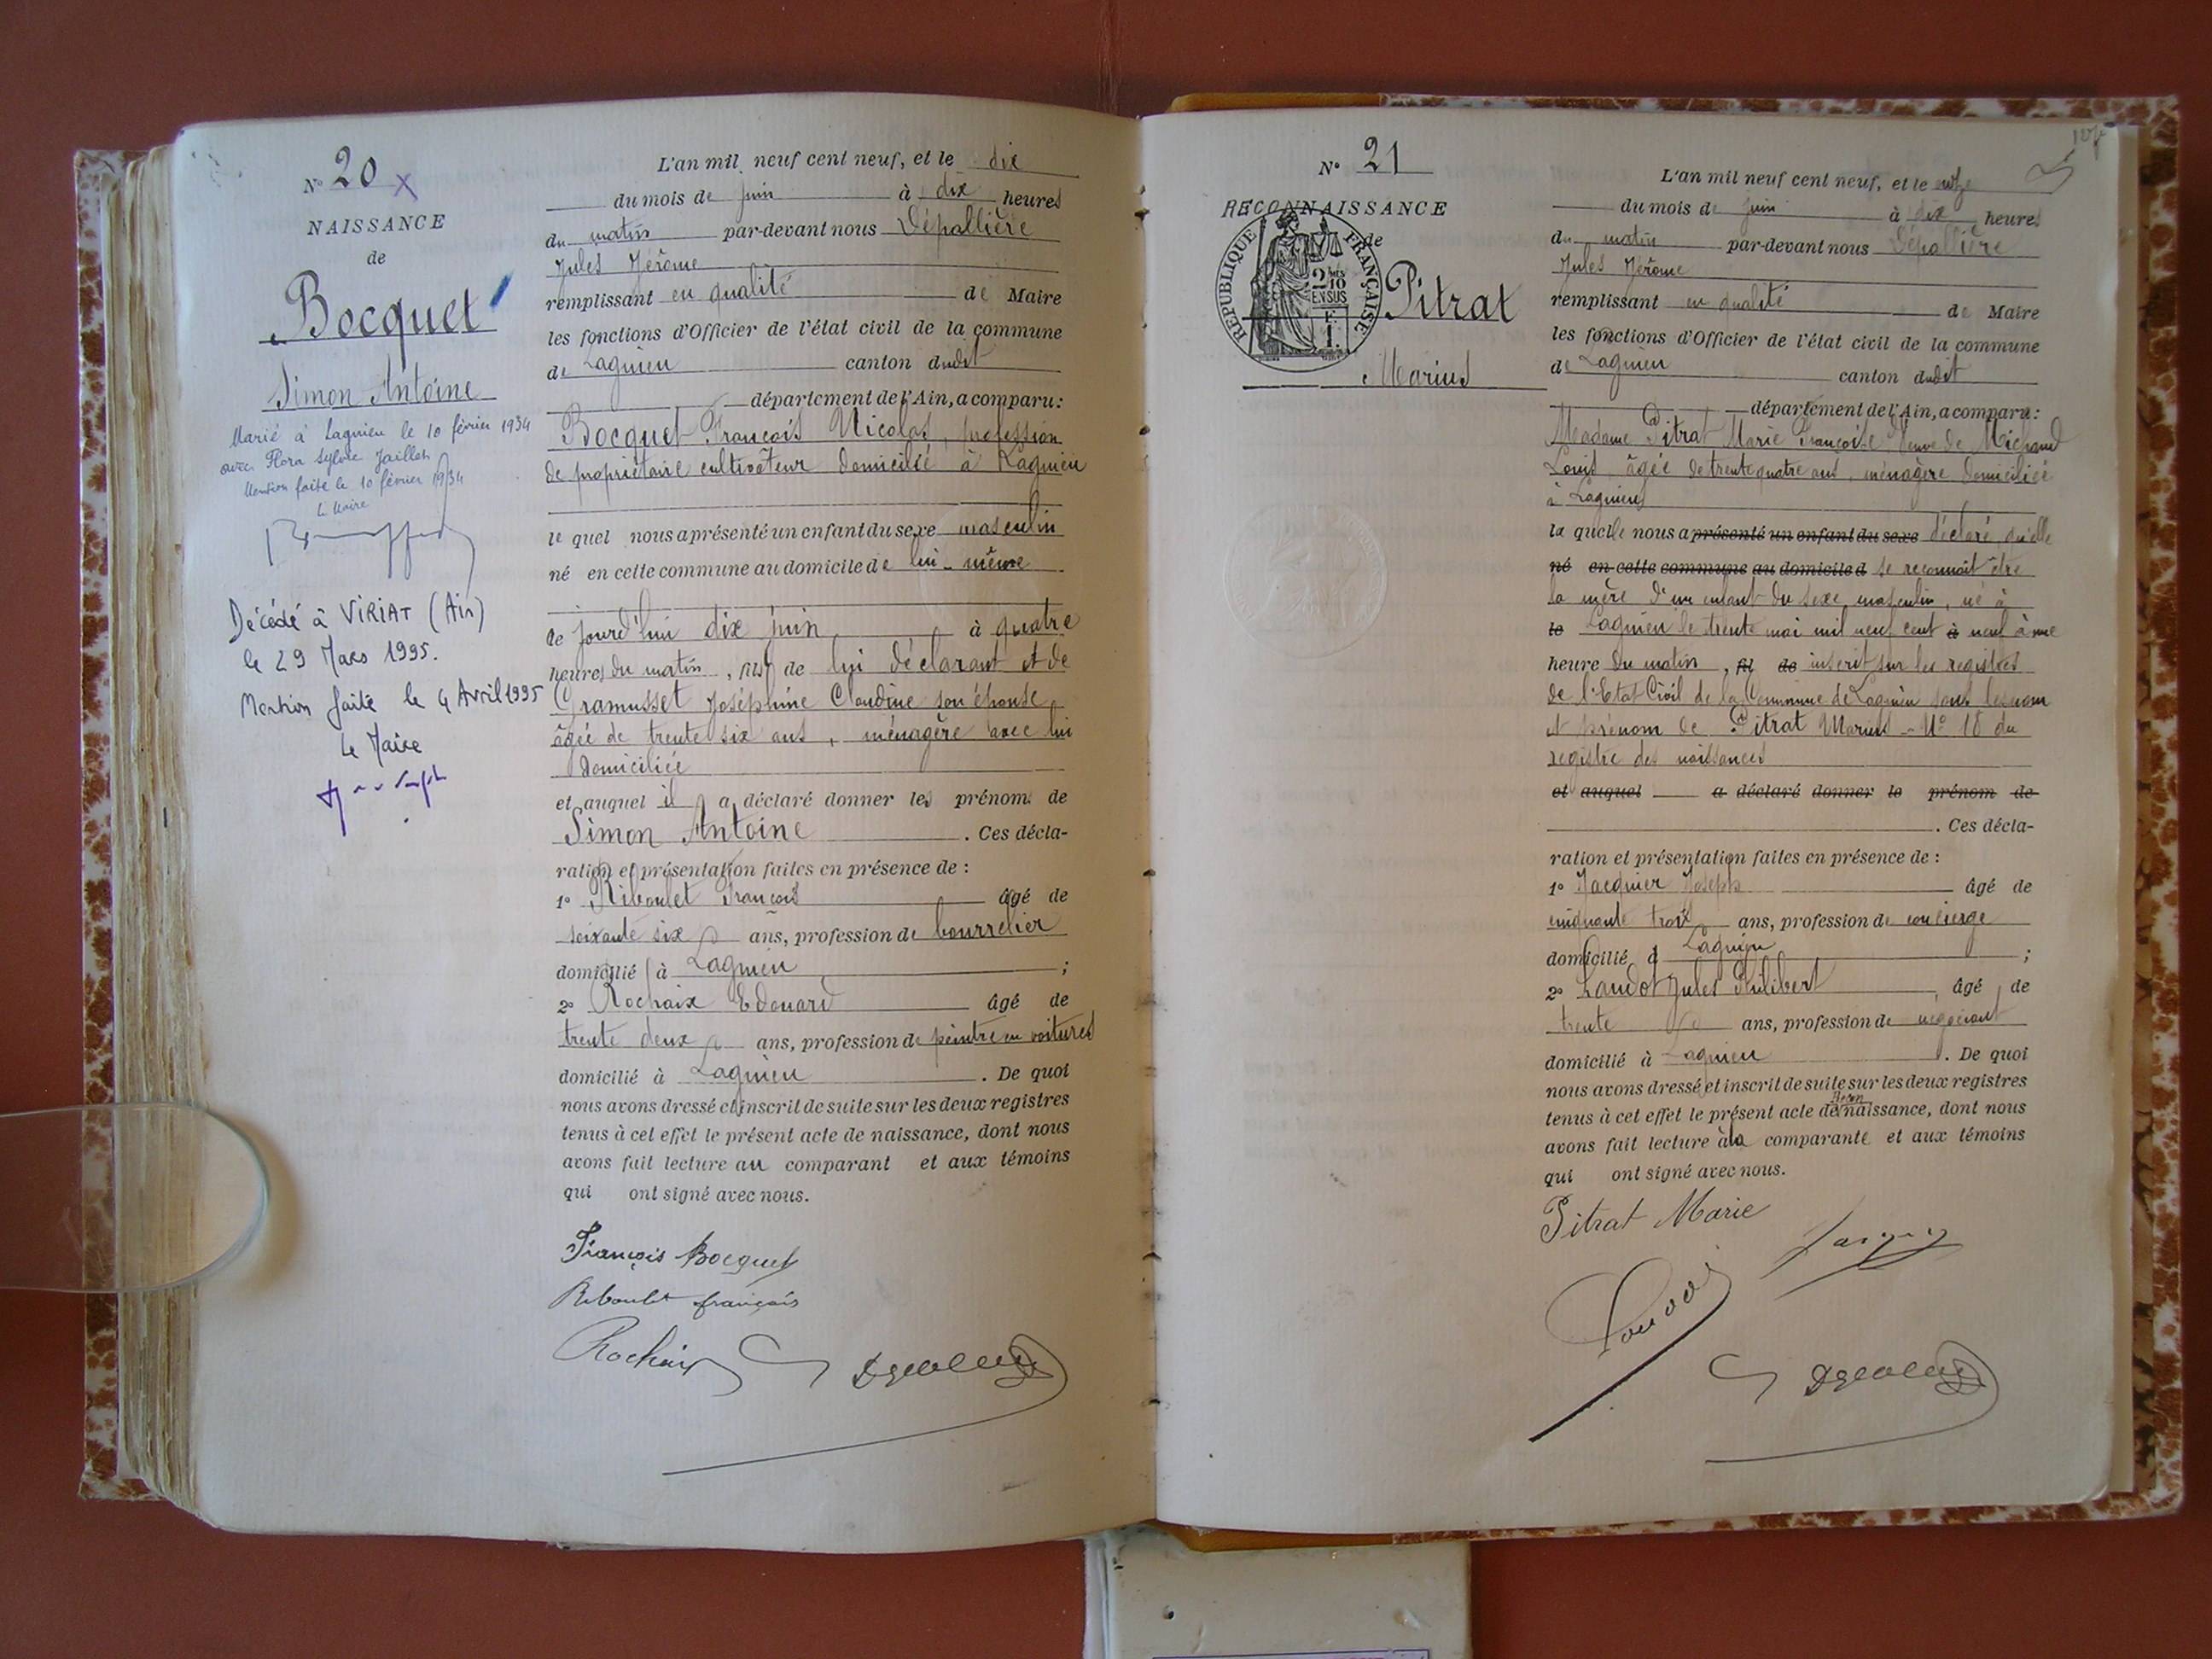 N° 20 X
NAISSANCE
de
Bocquet
Simon Antoine
Marié à Lagnieu le 10 février 1934
avec Flora Sylvie Jaillet
Mention faite le 10 février 1934
Le Maire
Décédé à VIRIAT (Ain)
le 29 Mars 1995.
Mention faite le 4 Avril 1995
Le Maire
L'an mil neuf cent neuf, et le dix
du mois de juin à dix heures
du matin par-devant nous Dépallière
Jules Jérôme
remplissant en qualité de Maire
les fonctions d'Officier de l'état civil de la commune
de Lagnieu canton dudit
département de l'Ain, a comparu:
Bocquet François Nicolas, profession
de propriétaire cultivateur domicilié à Lagnieu
le quel nous a présenté un enfant du sexe masculin
né en cette commune au domicile de lui-même
le jourd'hui dix juin à quatre
heures du matin, fils de lui déclarant et de
Gramusset Joséphine Claudine son épouse,
âgée de trente six ans, ménagère avec lui
domiciliée
et auquel il a déclaré donner les prénoms de
Simon Antoine. Ces décla-
ration et présentation faites en présence de :
1° Riboulet François âgé de
soixante six ans, profession de bourrelier
domicilié à Lagnieu ;
2° Rochaix Edouard âgé de
trente deux ans, profession de peintre en voitures
domicilié à Lagnieu. De quoi
nous avons dressé et inscrit de suite sur les deux registres
tenus à cet effet le présent acte de naissance, dont nous
avons fait lecture au comparant et aux témoins
qui ont signé avec nous.
François Bocquet
Riboulet françois
Rochaix
N° 21
RECONNAISSANCE
de
REPUBLIQUE FRANÇAISE
2/10
EN SUS
F.
1.
Pitrat
Marius
L'an mil neuf cent neuf, et le onze
du mois de juin à dix heures
du matin par-devant nous Dépallière
Jules Jérôme
remplissant en qualité de Maire
les fonctions d'Officier de l'état civil de la commune
de Lagnieu canton dudit
département de l'Ain, a comparu:
Madame Pitrat Marie Françoise Veuve de Michaud
Louis âgée de trente quatre ans, ménagère domiciliée
à Lagnieu
la quelle nous a présenté un enfant du sexe déclaré qu'elle
né en cette commune au domicile d se reconnaît être
la mère d'un enfant du sexe masculin, né à
le Lagnieu le trente mai mil neuf cent à neuf à une
heure du matin, fil de inscrit sur les registres
de l'Etat Civil de la Commune de Lagnieu sous les nom
et prénom de Pitrat Marius - N° 18 du
registre des naissances
et auquel a déclaré donner le prénom de
. Ces décla-
ration et présentation faites en présence de :
1° Jacquier Joseph âgé de
cinquante trois ans, profession de concierge
domicilié à Lagnieu ;
2° Landot Jules Philibert, âgé de
trente ans, profession de négociant
domicilié à Lagnieu. De quoi
nous avons dressé et inscrit de suite sur les deux registres
tenus à cet effet le présent acte de naissance, dont nous
avons fait lecture à la comparante et aux témoins
qui ont signé avec nous.
Pitrat Marie